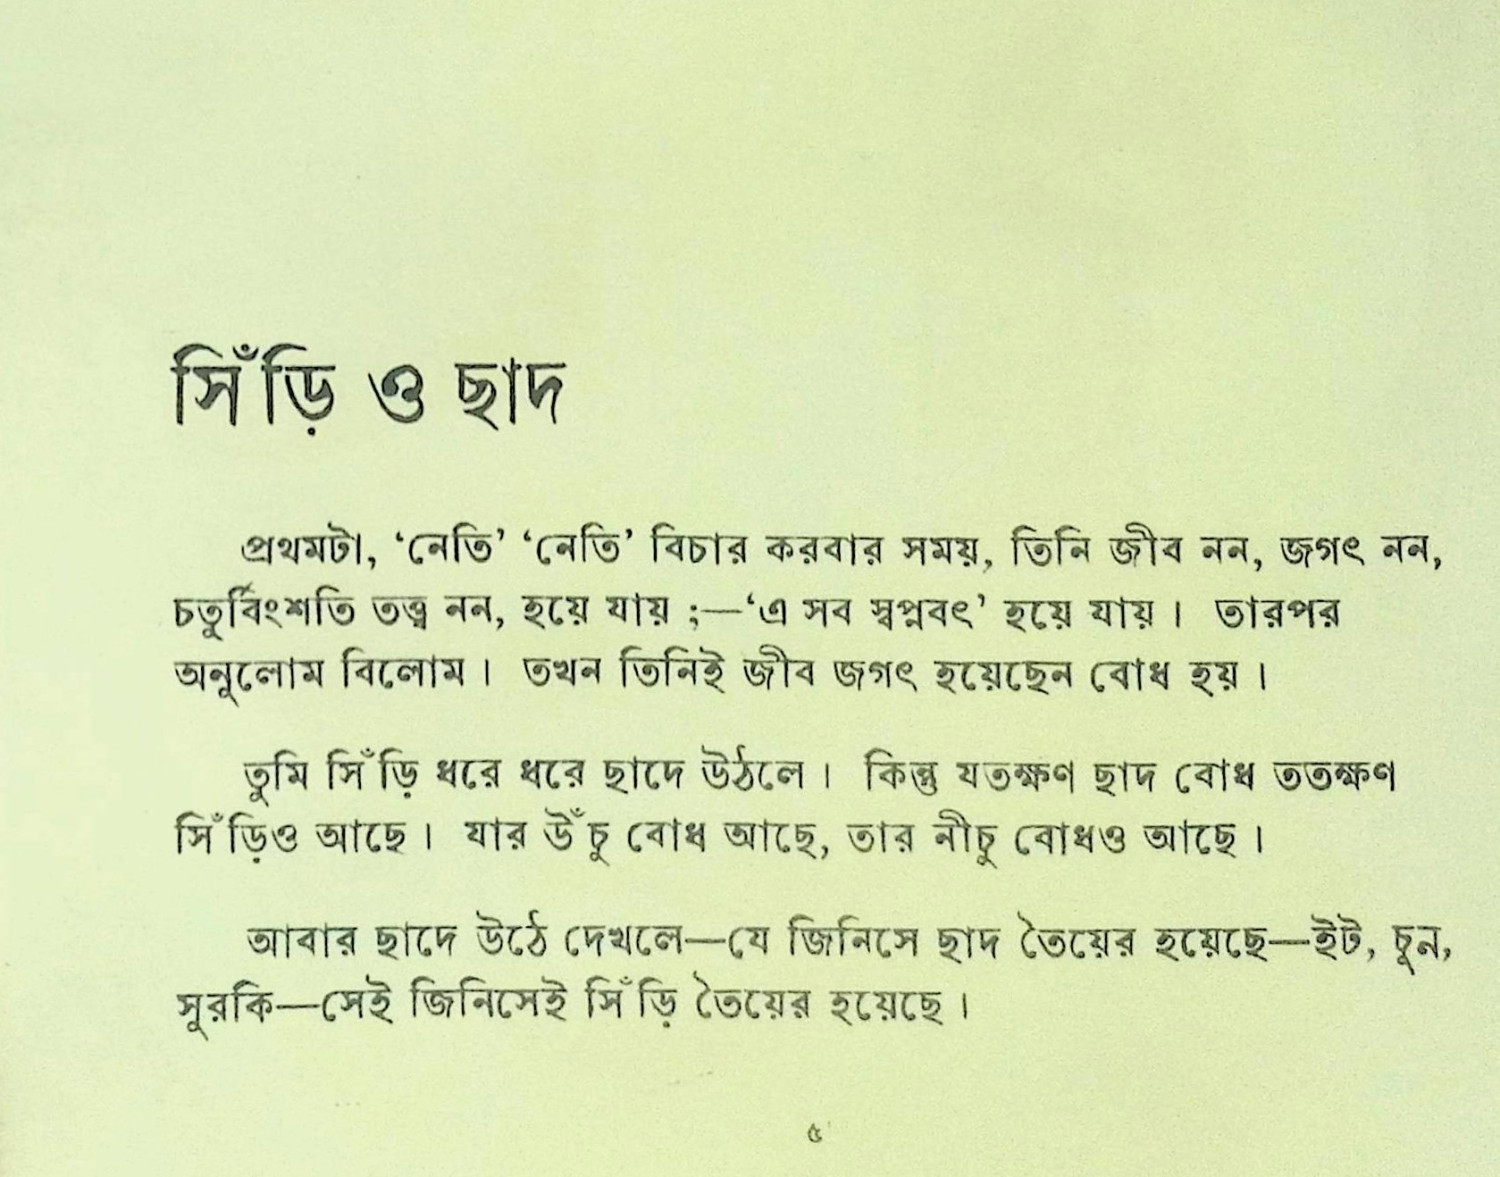 সিঁড়ি ও ছাদ
প্রথমটা, ‘নেতি’ ‘নেতি’ বিচার করবার সময়, তিনি জীব নন, জগৎ নন,
চতুর্বিংশতি তত্ত্ব নন, হয়ে যায় ;—‘এ সব স্বপ্নবৎ’ হয়ে যায় । তারপর
অনুলোম বিলোম । তখন তিনিই জীব জগৎ হয়েছেন বোধ হয় ।
তুমি সিঁড়ি ধরে ধরে ছাদে উঠলে । কিন্তু যতক্ষণ ছাদ বোধ ততক্ষণ
সিঁড়িও আছে । যার উঁচু বোধ আছে, তার নীচু বোধও আছে ।
আবার ছাদে উঠে দেখলে—যে জিনিসে ছাদ তৈয়ের হয়েছে—ইট, চুন,
সুরকি—সেই জিনিসেই সিঁড়ি তৈয়ের হয়েছে ।
৫